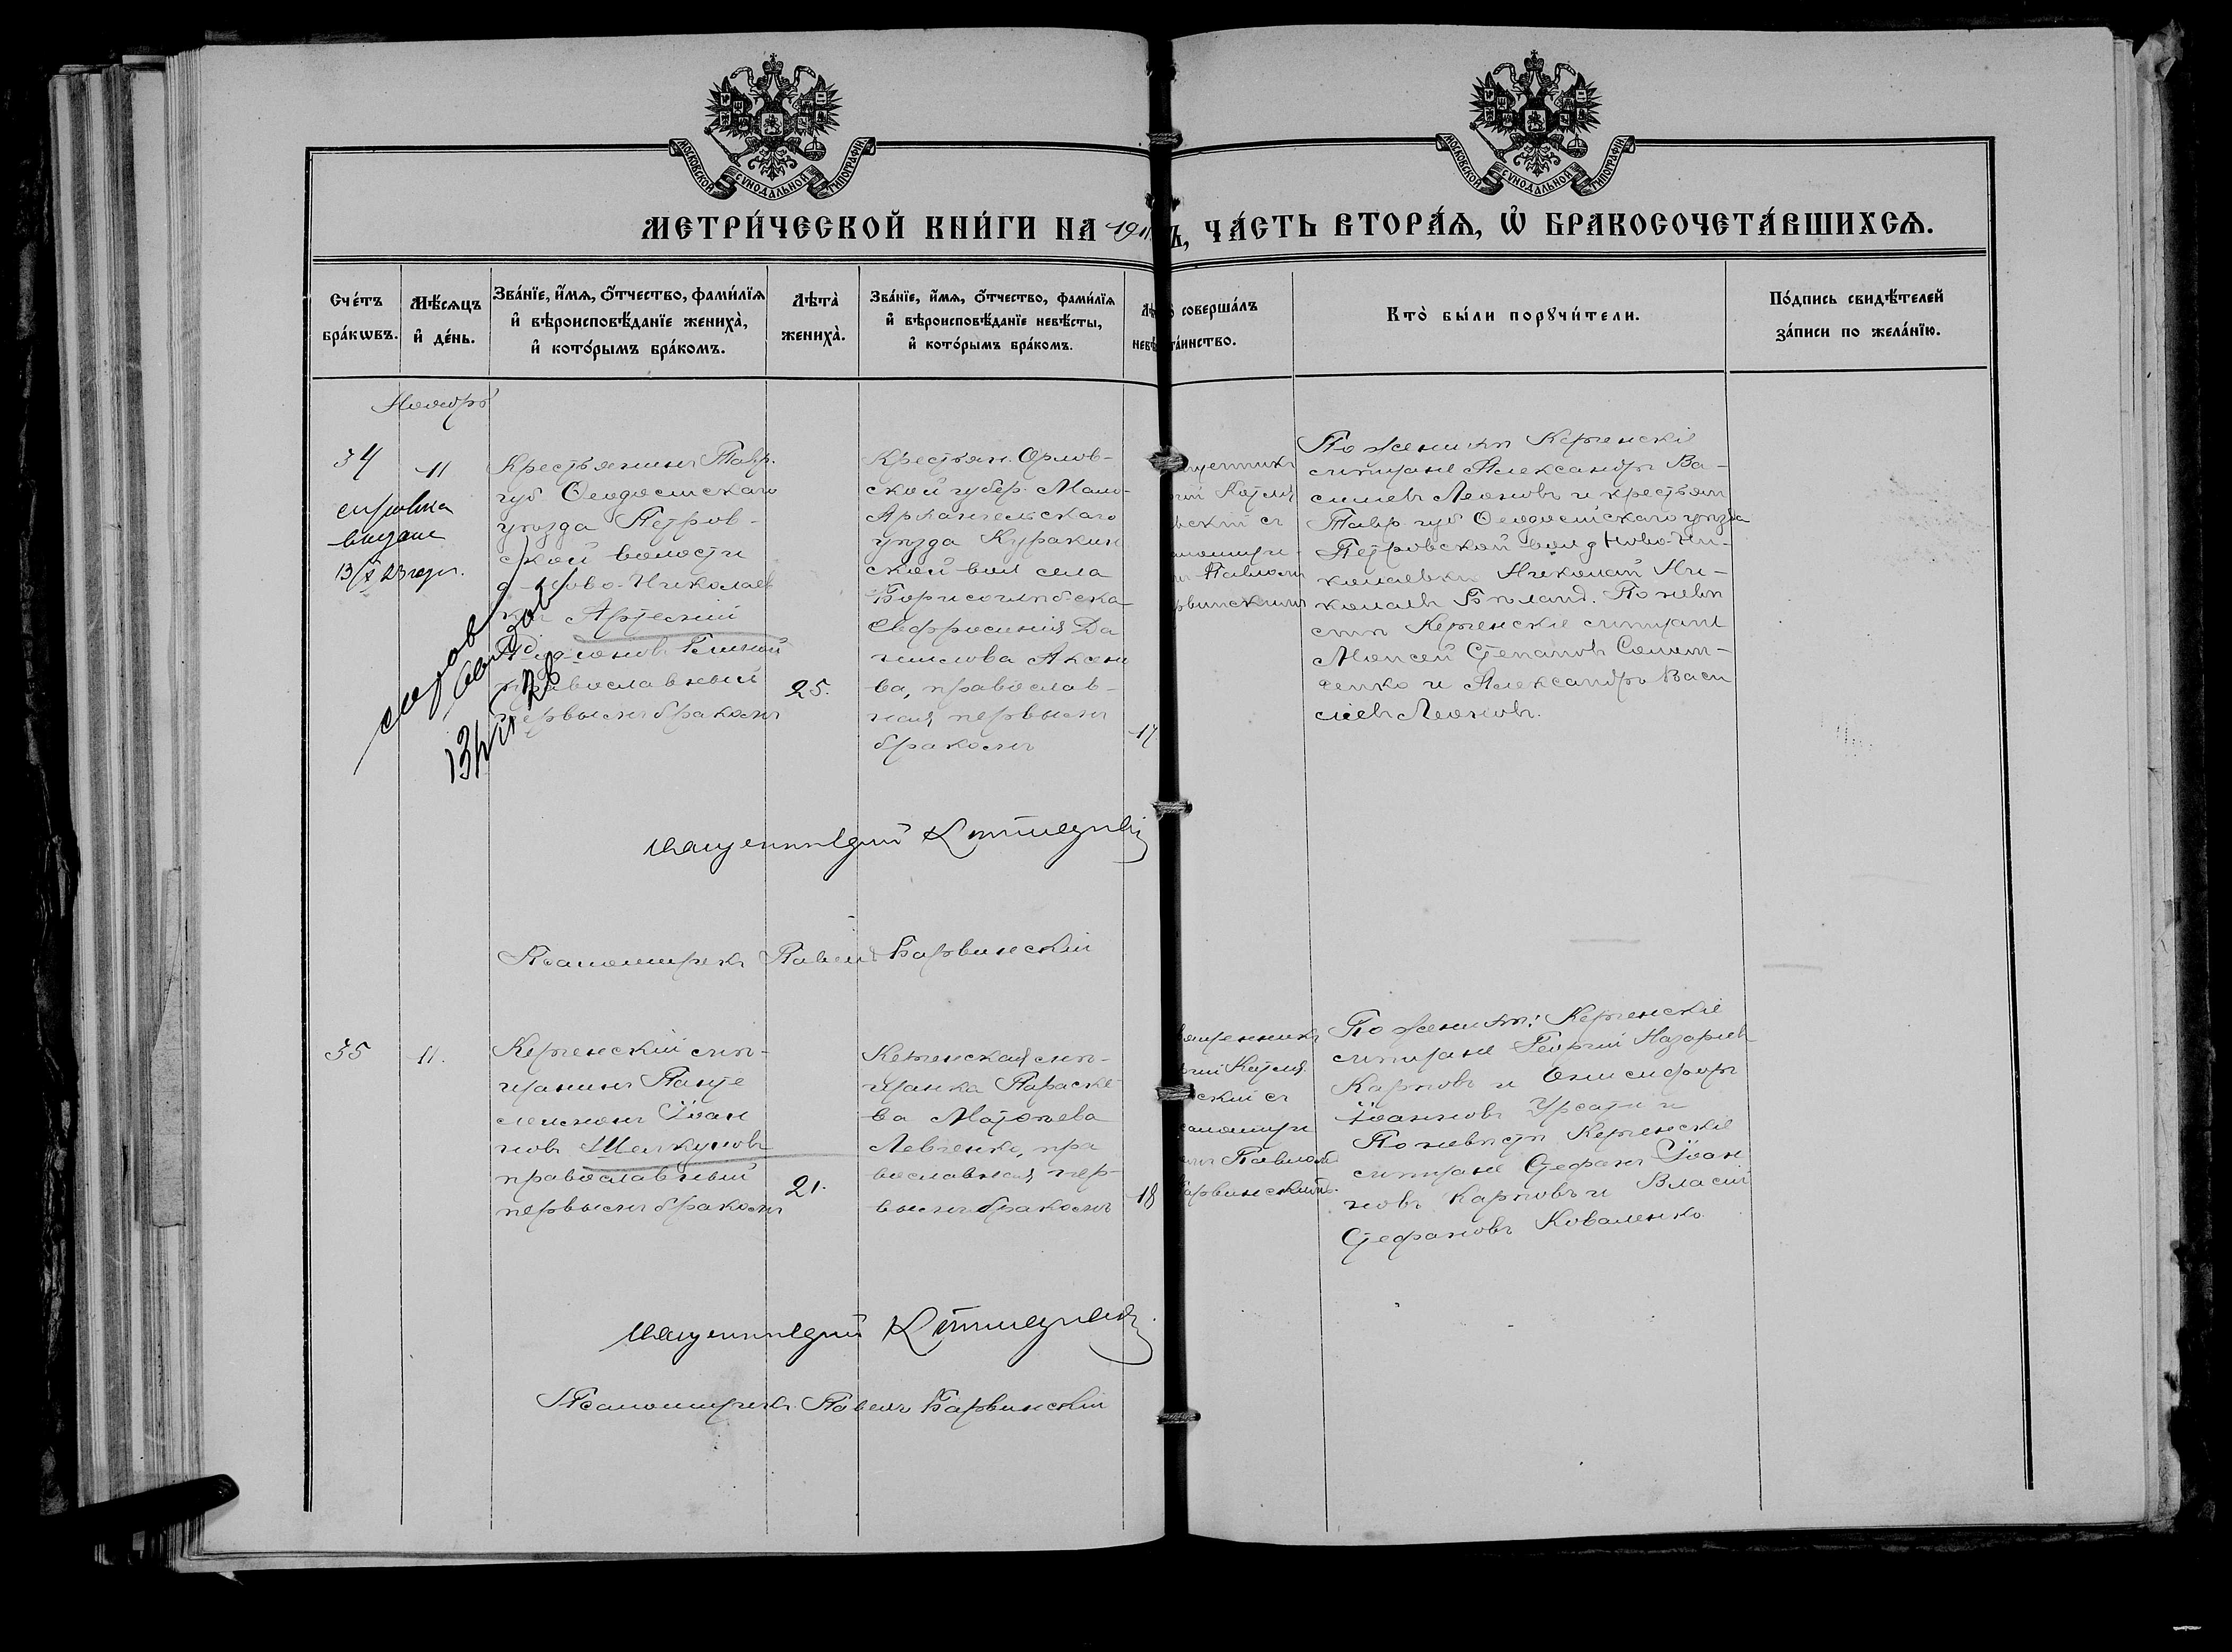 МОСКОВСКОЙ СѴНОДАЛЬНОЙ ТИПОГРАФІИ
МОСКОВСКОЙ СѴНОДАЛЬНОЙ ТИПОГРАФІИ
МЕТРИ́ЧЕСКОЙ КНИ́ГИ НА 1911
Ъ, ЧА́СТЬ ВТОРА́Ѧ, Ѡ҆ БРАКОСОЧЕТА́ВШИХСѦ.
Сче́тъ
бра́кѡвъ.
Мѣ́сяцъ
и҆ де́нь.
Зва́нїе, и҆́мѧ, ѻ҆́тчество, фами́лїѧ
и҆ вѣроисповѣ́данїе жениха̀,
и҆ кото́рымъ бра́комъ.
Лѣта̀
жениха̀.
Зва́нїе, и҆́мѧ, ѻ҆́тчество, фами́лїѧ
и҆ вѣроисповѣ́данїе невѣ́сты,
и҆ кото́рымъ бра́комъ.
Лѣ
невѣ
о̀ соверша́лъ
та́инство.
Кто̀ бы́ли порꙋчи́тели.
По́дпись свидѣ́телей
за́писи по жела́нїю.
Ноябрь
34
11
справка
выдана
13/X 23 годъ.
Крестьянинъ Тавр.
губ Ѳеодосійскаго
уѣзда Петров-
ской волости
д Ново-Николаев
ки Артемій
Родіоновъ
православный
первымъ бракомъ
25.
Крестьян. Орлов-
ской губер. Мало-
Архангельскаго
уѣзда Куракин
ской вол села
Борисоглѣбска
Евфросинія Да
нилова Аксен
ва, православ-
ная, первымъ
бракомъ
17
щенникъ
гій Котля
вскій съ
аломщи-
мъ Павломъ
рвинскимъ
По женихѣ Керченскіе
мѣщане Александръ Ва-
сильевъ Леоновъ и крестьян
Тавр губ Ѳеодосійскаго уѣзда
Петровской вол д Ново-Ни-
колаевки Николай Ни-
колаевъ По невѣ
стѣ Керченскіе мѣщане
Моисей Степановъ
и Александръ Васи
льевъ Леоновъ.
Псаломщикъ Павелъ Барвинскій
35
11.
Керченскій мѣ-
щанинъ Панте
леимонъ Іоан
новъ Шелкуновъ
православный
первымъ бракомъ
21.
Керченская мѣ-
щанка Параске
ва Матѳѣева
Левченко, пра
вославная, пер-
вымъ бракомъ
18
ященникъ
гій Котля
скій съ
саломщи
мъ Павломъ
арвинскимъ.
По женихѣ: Керченскіе
мѣщане Георгій Назаріевъ
Карповъ и Онисифоръ
Іоанновъ
По невѣстѣ Керченскіе
мѣщане Стефанъ Іоан
новъ Карповъ и Власій
Стефановъ Коваленко
Псаломщикъ Павелъ Барвинскій